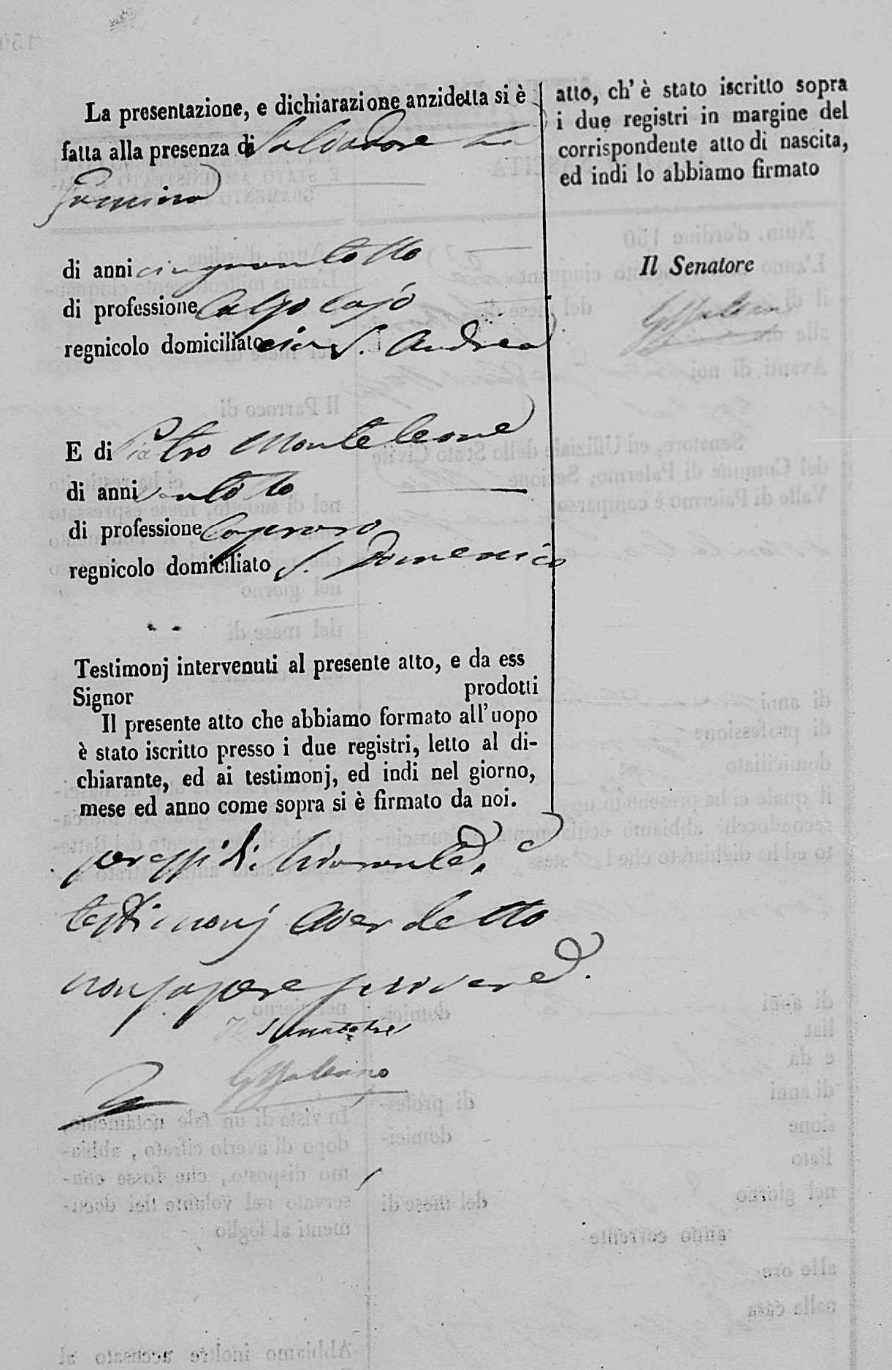 La presentazione, e dichiarazione anzidetta si è
fatta alla presenza di Salvadore La
di anni cinquantotto
di professione Calzolajo
regnicolo domiciliato via S. Andrea
E di Pietro Monteleone
di anni ventotto
di professione
regnicolo domiciliato S. Domenico
Testimonj intervenuti al presente atto, e da ess
Signor prodotti
Il presente atto che abbiamo formato all'uopo
è stato iscritto presso i due registri, letto al di-
chiarante, ed ai testimonj, ed indi nel giorno,
mese ed anno come sopra si è firmato da noi.
dichiarante, e
testimonj aver detto
non sapere scrivere.
Il Senatore
atto, ch' è stato iscritto sopra
i due registri in margine del
corrispondente atto di nascita,
ed indi lo abbiamo firmato
Il Senatore